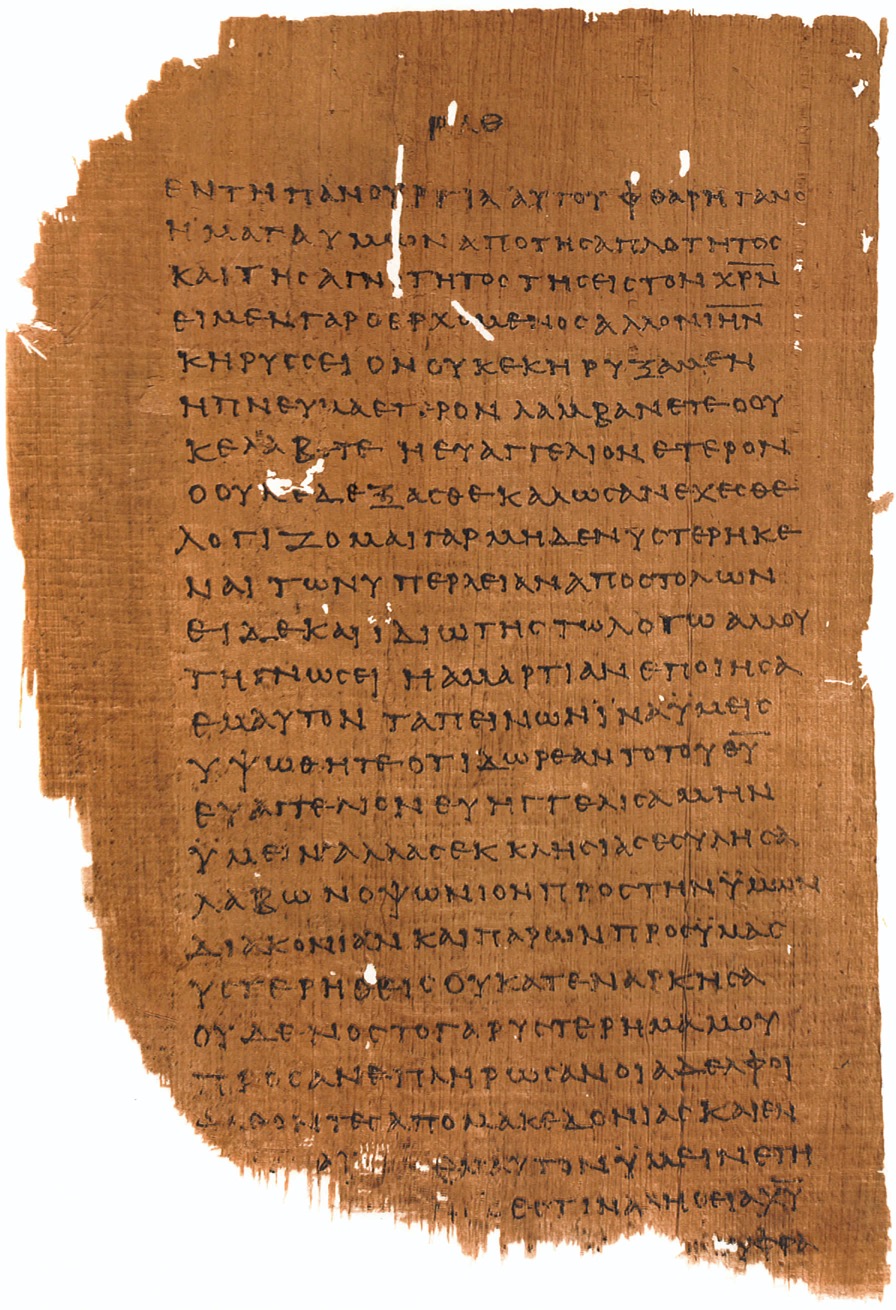 ΡΛΘ
ΕΝ ΤΗ ΠΑΝΟΥΡΓΙΑ ΑΥΤΟΥ ΦΘΑΡΗ ΤΑ ΝΟ
ΗΜΑΤΑ ΥΜΩΝ ΑΠΟ ΤΗΣ ΑΠΛΟΤΗΤΟΣ
ΚΑΙ ΤΗΣ ΑΓΝΟΤΗΤΟΣ ΤΗΣ ΕΙΣ ΤΟΝ Χ̅Ρ̅Ν̅
ΕΙ ΜΕΝ ΓΑΡ Ο ΕΡΧΟΜΕΝΟΣ ΑΛΛΟΝ Ι̅Η̅Ν̅
ΚΗΡΥΣΣΕΙ ΟΝ ΟΥΚ ΕΚΗΡΥΞΑΜΕΝ
Η ΠΝΕΥΜΑ ΕΤΕΡΟΝ ΛΑΜΒΑΝΕΤΕ Ο ΟΥ
Κ ΕΛΑΒΕΤΕ Η ΕΥΑΓΓΕΛΙΟΝ ΕΤΕΡΟΝ
Ο ΟΥΚ ΕΔΕΞΑΣΘΕ ΚΑΛΩΣ ΑΝΕΧΕΣΘΕ
ΛΟΓΙΖΟΜΑΙ ΓΑΡ ΜΗΔΕΝ ΥΣΤΕΡΗΚΕ
ΝΑΙ ΤΩΝ ΥΠΕΡΛΕΙΑΝ ΑΠΟΣΤΟΛΩΝ
ΕΙ ΔΕ ΚΑΙ ΙΔΙΩΤΗΣ ΤΩ ΛΟΓΩ ΑΛΛ ΟΥ
ΤΗ ΓΝΩΣΕΙ Η ΑΜΑΡΤΙΑΝ ΕΠΟΙΗΣΑ
ΕΜΑΥΤΟΝ ΤΑΠΕΙΝΩΝ ΪΝΑ ΫΜΕΙΣ
ΥΨΩΘΗΤΕ ΟΤΙ ΔΩΡΕΑΝ ΤΟ ΤΟΥ Θ̅Υ̅
ΕΥΑΓΓΕΛΙΟΝ ΕΥΗΓΓΕΛΙΣΑΜΗΝ
ΫΜΕΙΝ ΑΛΛΑΣ ΕΚΚΛΗΣΙΑΣ ΕΣΥΛΗΣΑ
ΛΑΒΩΝ ΟΨΩΝΙΟΝ ΠΡΟΣ ΤΗΝ ΫΜΩΝ
ΔΙΑΚΟΝΙΑΝ ΚΑΙ ΠΑΡΩΝ ΠΡΟΣ ΫΜΑΣ
ΥΣΤΕΡΗΘΕΙΣ ΟΥ ΚΑΤΕΝΑΡΚΗΣΑ
ΟΥΔΕΝΟΣ ΤΟ ΓΑΡ ΥΣΤΕΡΗΜΑ ΜΟΥ
ΠΡΟΣΑΝΕΠΛΗΡΩΣΑΝ ΟΙ ΑΔΕΛΦΟΙ
ΕΛΘΟΝΤΕΣ ΑΠΟ ΜΑΚΕΔΟΝΙΑΣ ΚΑΙ ΕΝ
ΕΜΑΥΤΟΝ ΫΜΕΙΝ ΕΤΗ
ΕΣΤΙΝ ΑΛΗΘΕΙΑ Χ̅Υ̅